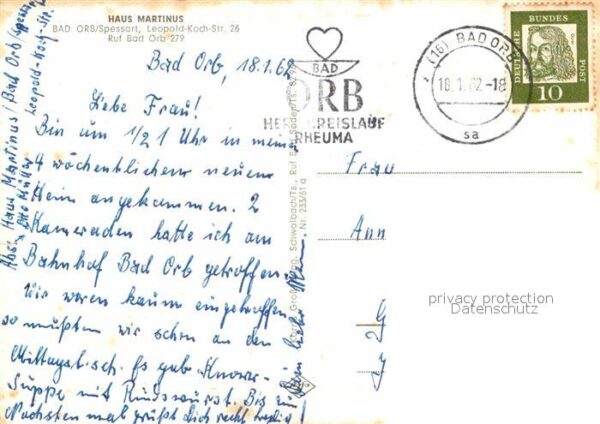 HAUS MARTINUS
BAD ORB/Spessart, Leopold-Koch-Str. 26
Ruf Bad Orb 279
Bad Orb, 18.1.62
Liebe Frau!
Bin um 1/21 Uhr in mein
4 wöchentlichem neuem
Heim angekommen. 2
Kameraden hatte ich am
Bahnhof Bad Orb getroffen.
Wir waren kaum eingetroffen
so mußten wir schon an den
Mittagstisch. Es gab
Suppe mit Rindswurst. Bis zum
Nächsten mal grüßt Dich recht herzlich
Dein lieber Mann.
Abs. Haus Martinus Bad Orb (Spessart)
Otto Müller Leopold-Koch-Str.
BAD
ORB
HERZ KREISLAUF
RHEUMA
(16) BAD ORB
18.1.62-18
sa
DEUTSCHE
BUNDES
POST
10
Schwalbach/Ts.,
Nr. 233/61 a
Frau
Ann
G
J
privacy protection
Datenschutz